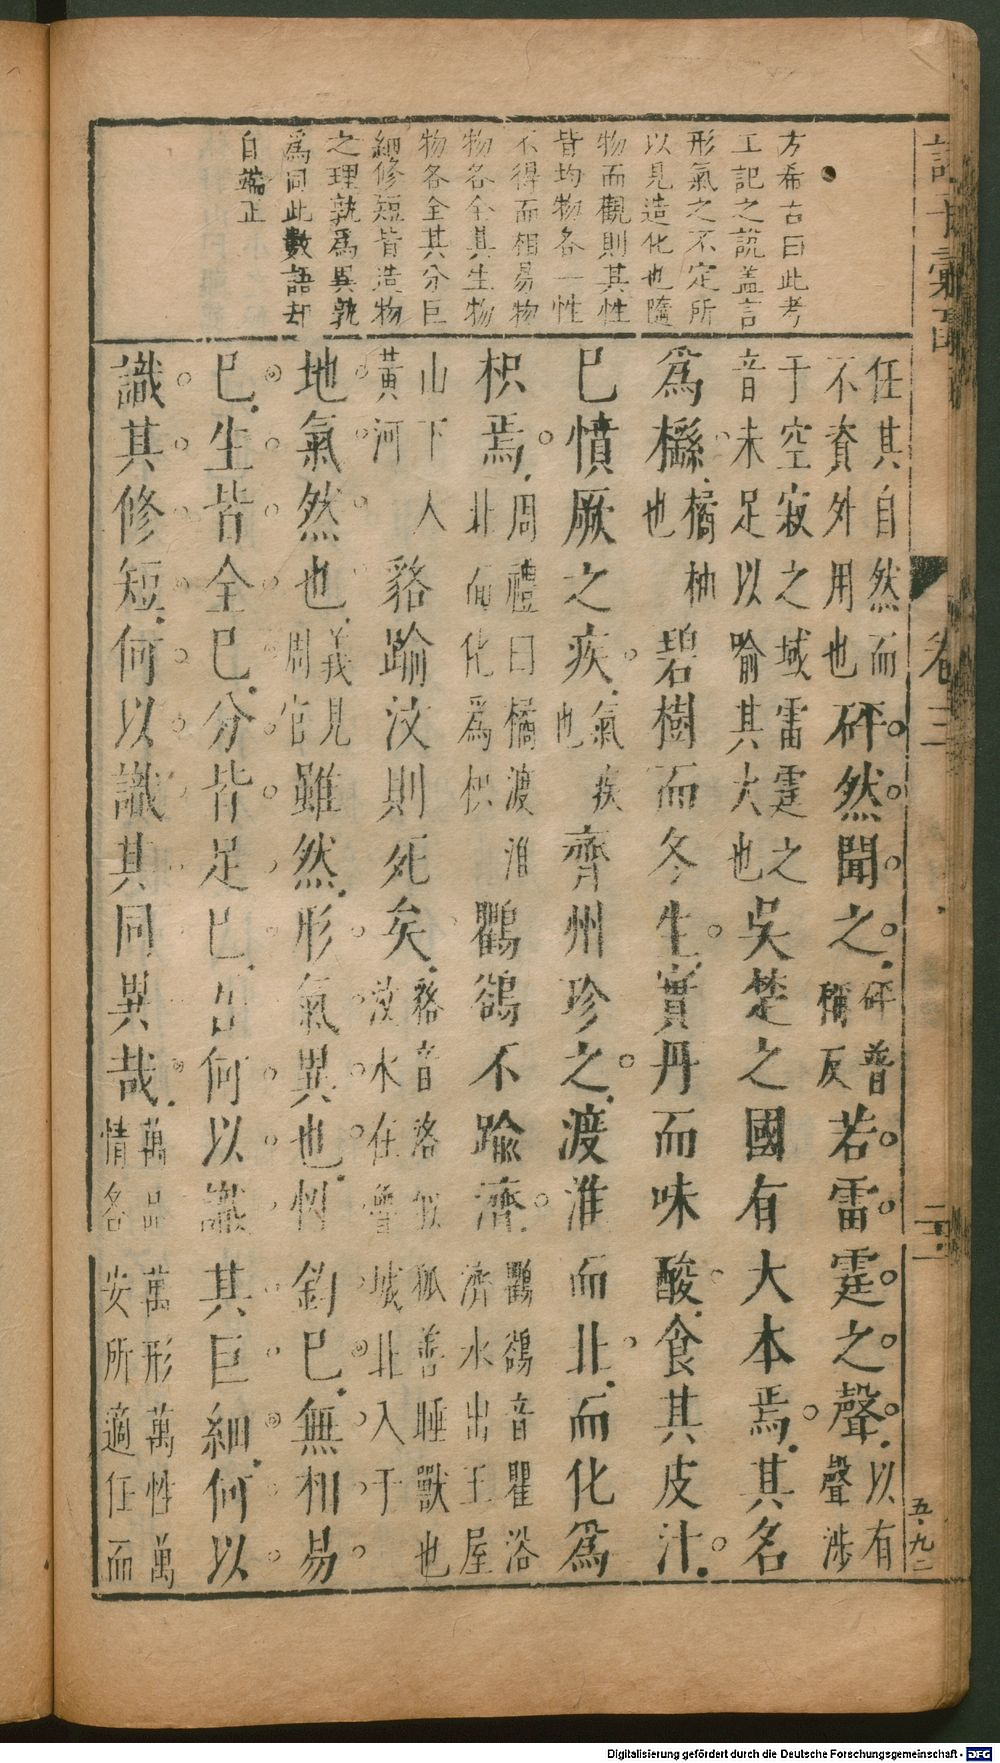 方希古曰此考
工記之說盖言
形氣之不定所
以見造化也隨
物而觀則其性
皆均物各一性
不得而相易物
物各全其生物
物各全其分巨
細修短皆造物
之理孰爲異孰
爲同此數語却
自端正
卷三
二十一
五九二
任其自然而
不資外用也
砰然聞之
砰普
稱反
若雷霆之聲
以有
聲涉
于空寂之域雷霆之
音未足以喻其大也
吳楚之國有大本焉其名
爲櫾
橘柚
也
碧樹而冬生實丹而味酸食其皮汁
已憤厥之疾
氣疾
也
齊州珍之渡淮而北而化爲
枳焉
周禮曰橘渡淮
北而化爲枳
鸜鵒不踰濟
鸜鵒音瞿浴
濟水出王屋
山下人
黃河
貉踰汶則死矣
貉音洛似狐善睡獸也
汶水在魯城北入于
地氣然也
義見
周官
雖然形氣異也性鈞已無相易
已生皆全已分皆足已吾何以識其巨細何以
識其修短何以識其同異哉
萬品萬形萬性萬
情各安所適任而
Digitalisierung gefördert durch die Deutsche Forschungsgemeinschaft - DFG